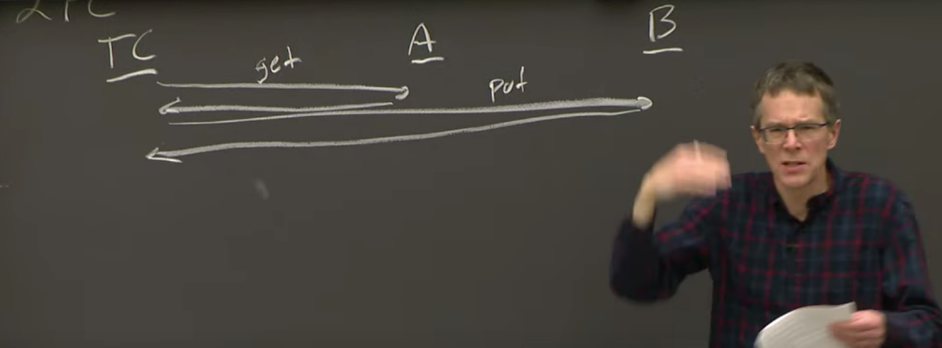 2PC
TC A B
get
put